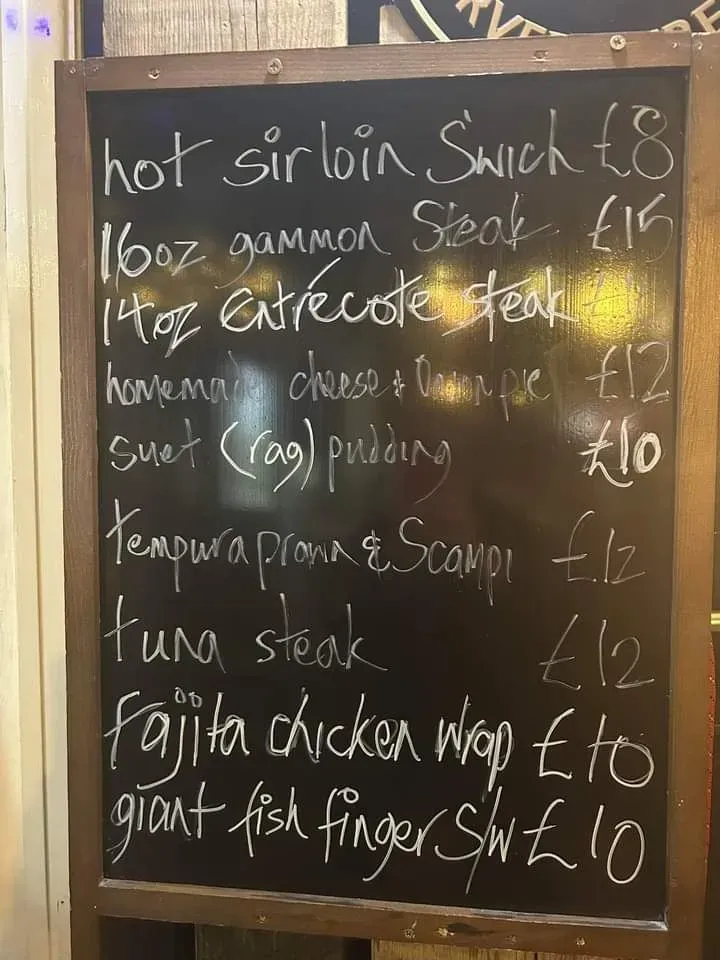 hot sirloin Swich £8
16oz gammon Steak £15
14oz Entrécote steak
homemade cheese & Onion pie £12
suet (rag) pudding £10
tempura prawn & Scampi £12
tuna steak £12
Fajita chicken wrap £10
giant fish finger S/W £10